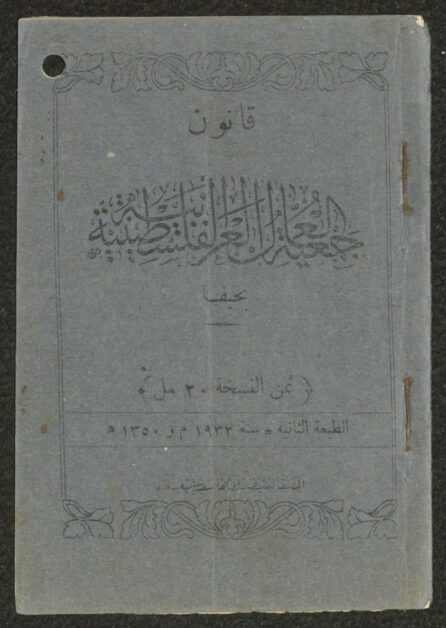 قانون
جمعية العمال العربية الفلسطينية
بحيفا
﴿ ثمن النسخة ٢٠ مل ﴾
الطبعة الثانية ۞ سنة ١٩٣٢ م و ١٣٥٠ ه